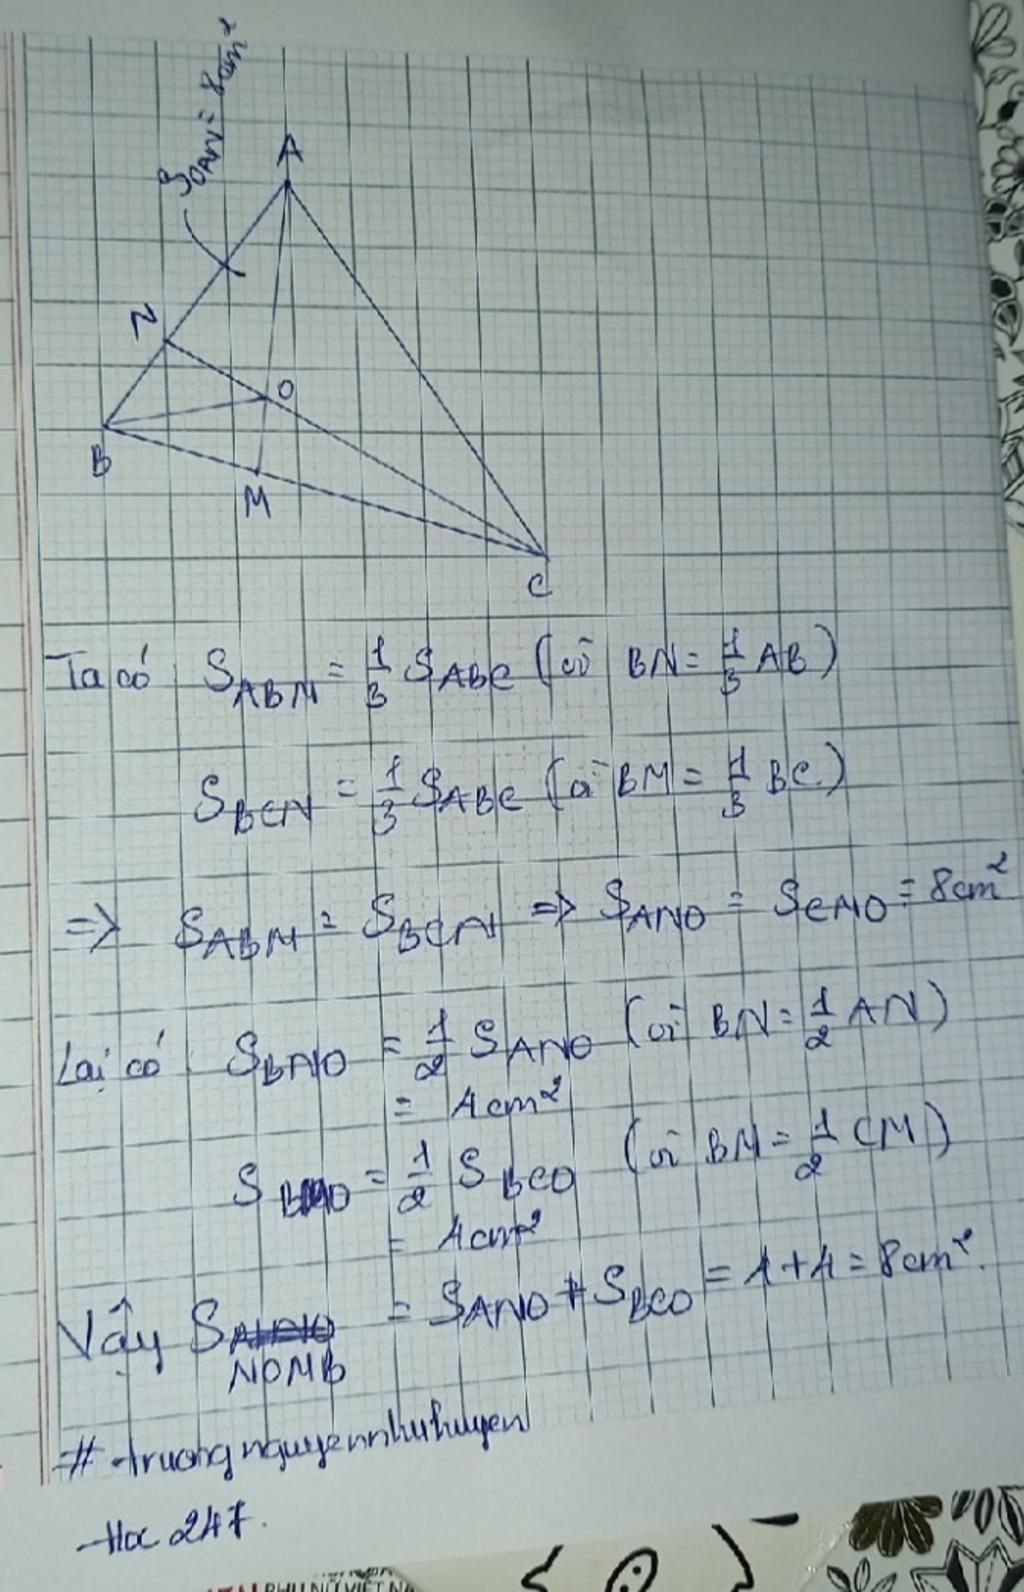 S_OAN = 8cm²
A
N
O
B
M
C
Ta có S_ABM = 1/3 S_ABC (vì BN = 1/3 AB)
S_BCN = 1/3 S_ABC (vì BM = 1/3 BC)
=> S_ABM = S_BCN => S_ANO = S_CMO = 8cm²
Lại có S_BNO = 1/2 S_ANO (vì BN = 1/2 AN)
= 4cm²
S_BMO = 1/2 S_BCO (vì BM = 1/2 CM)
= 4cm²
Vậy S
NOMB = S_ANO + S_BCO = 4+4 = 8cm².
# truongnguyennhuhuyen
Hoc 247.
PHỤ NỮ VIỆT NA